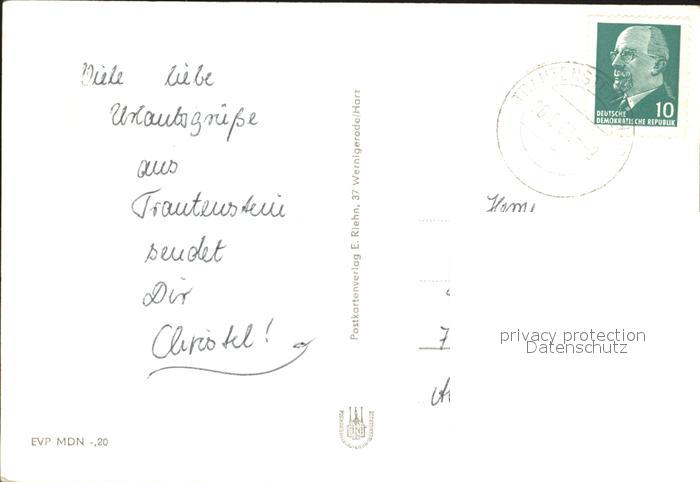 Viele liebe
Urlaubsgrüße
aus
Trautenstein
sendet
Dir
Christel!
EVP MDN -,20
Postkartenverlag E. Riehn, 37 Wernigerode/Harz
TRAUTENST
10
DEUTSCHE
DEMOKRATISCHE REPUBLIK
7
privacy protection
Datenschutz